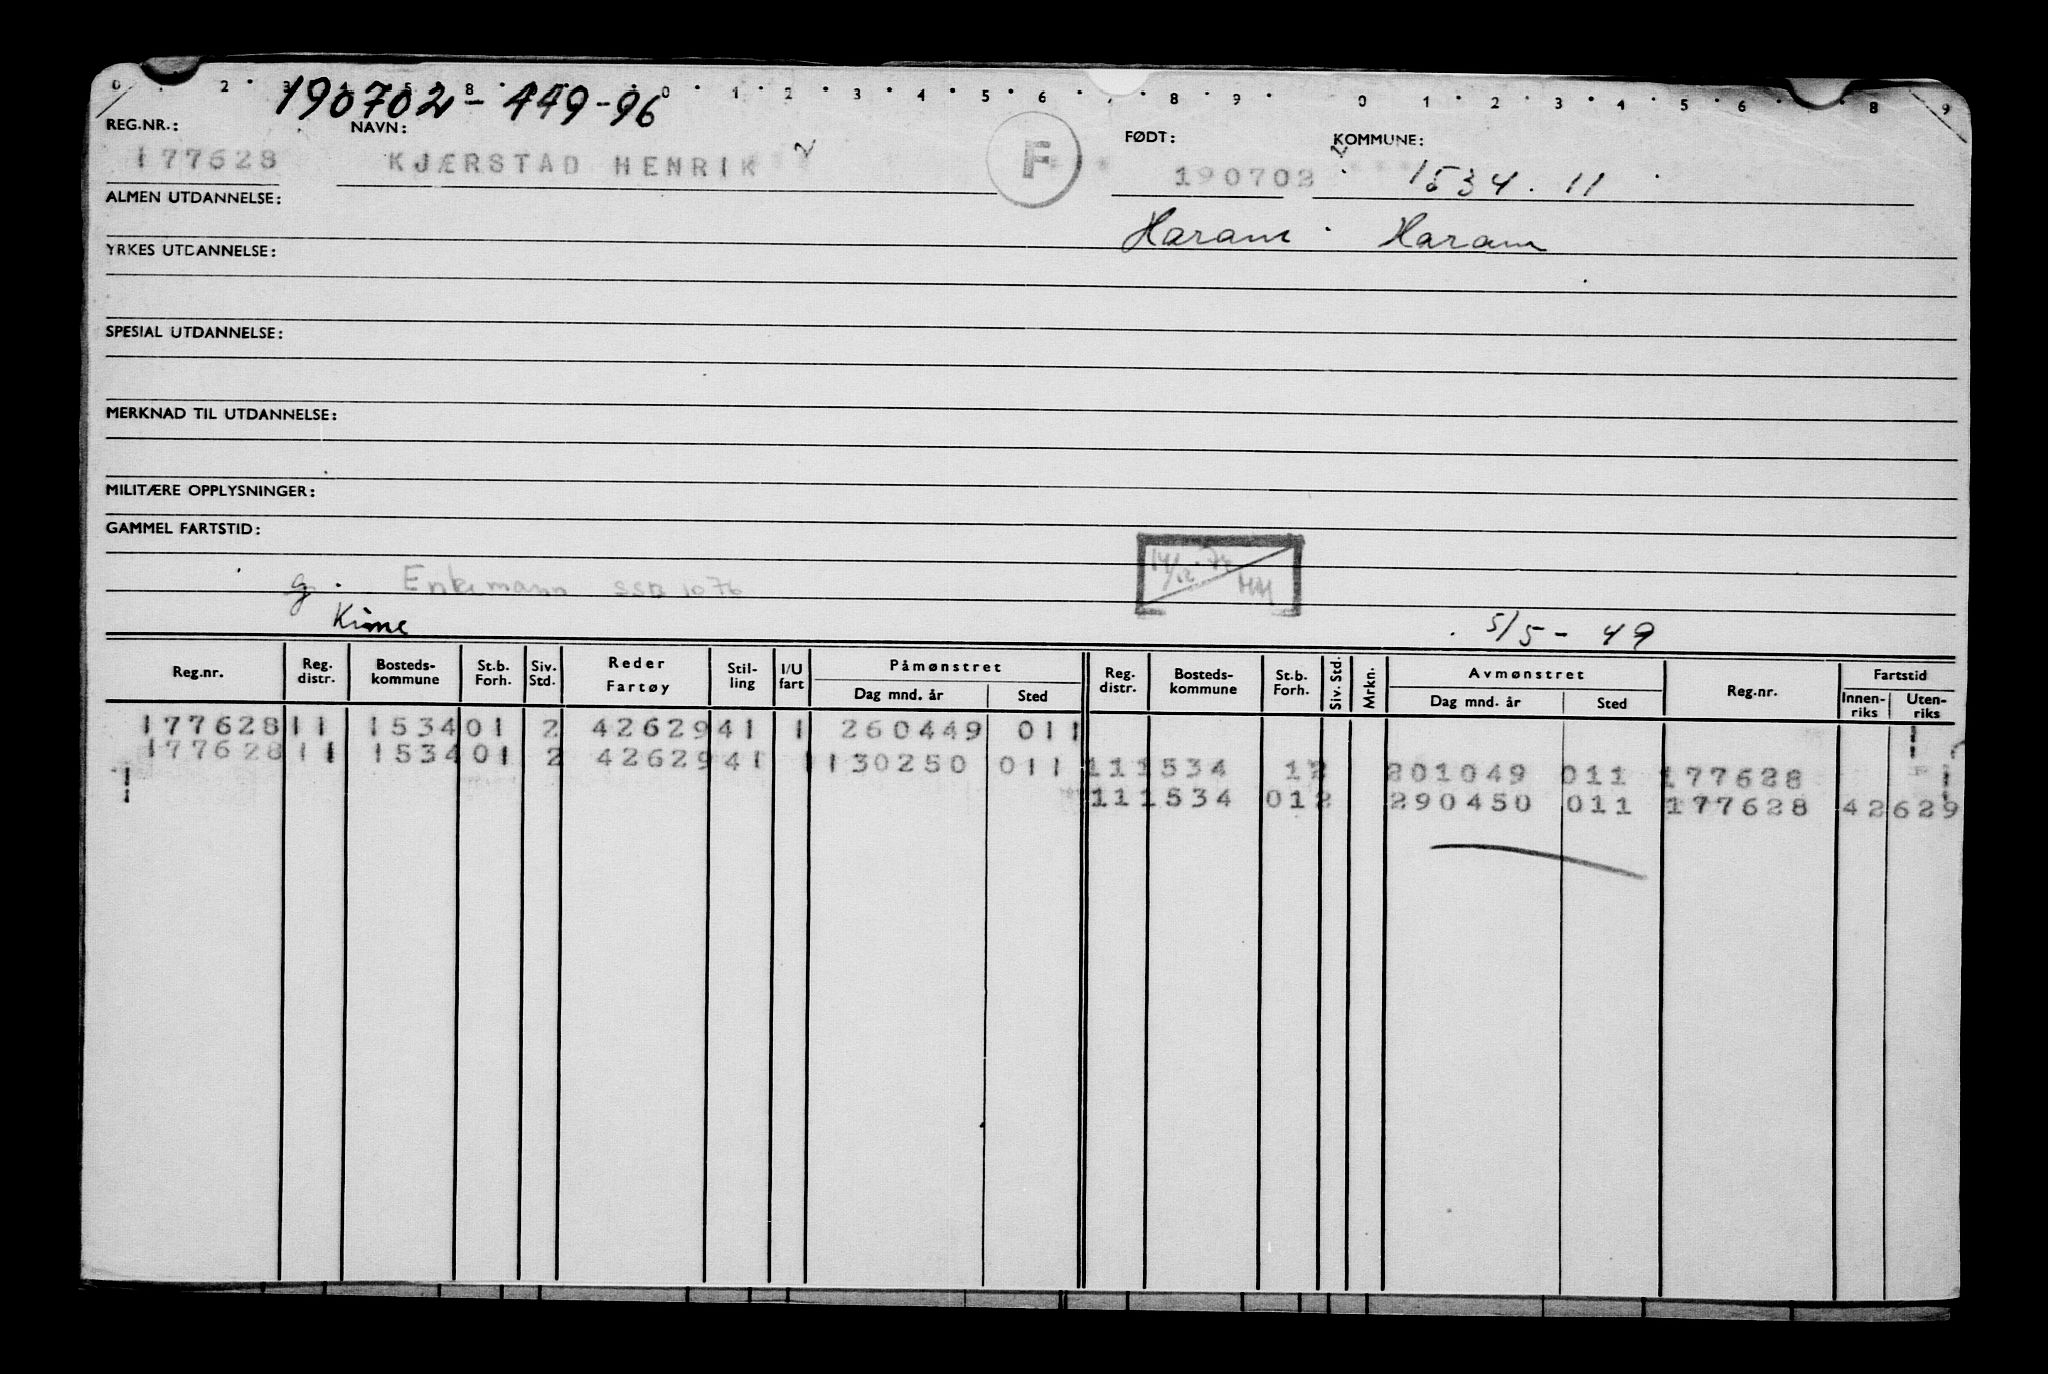 0 2 3 5 8 0 1 2 3 4 5 6 8 9 0 1 2 3 4 5 6 8 9
190702-449-96
REG.NR.: NAVN: FØDT: KOMMUNE:
177628 KJÆRSTAD HENRIK F 190702 1534. 11
ALMEN UTDANNELSE:
Haram Haram
YRKES UTDANNELSE:
SPESIAL UTDANNELSE:
MERKNAD TIL UTDANNELSE:
MILITÆRE OPPLYSNINGER:
GAMMEL FARTSTID:
g. Enkemann SSB 1076
5/5-49
Reg.nr. Reg. distr. Bosteds-kommune St.b. Forh. Siv. Std. Reder Fartøy Stil-ling I/U fart Påmønstret Reg. distr. Bosteds-kommune St.b. Forh. Siv. Std. Mrkn. Avmønstret Reg.nr. Fartstid
Dag mnd. år Sted Dag mnd. år Sted Innen-riks Uten-riks
177628 11 1534 01 2 42629 41 1 260449 011
177628 11 1534 01 2 42629 41 1 130250 011 11 1534 1 2 201049 011 177628
11 1534 01 2 290450 011 177628 42629